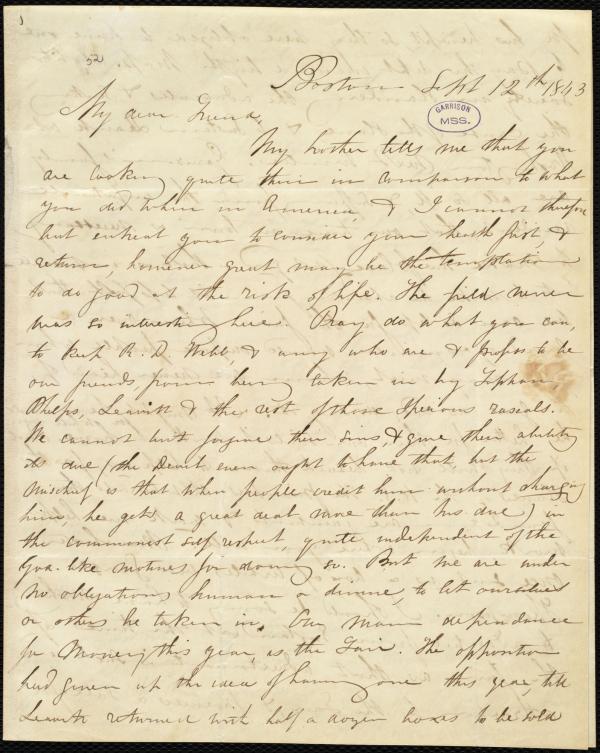 52
Boston Sept 12th 1843
GARRISON
MSS.
My dear Friend,
My brother tells me that you
are looking quite thin in comparison to what
you did when in America, & I cannot therefore
but entreat you to consider your health first, &
return, however great may be the temptation
to do good at the risk of life. The field never
was so interesting here. Pray do what you can,
to keep R. D. Webb & any who are & profess to be
our friends, from being taken in by Tappan,
Phelps, Leavitt & the rest of those specious rascals.
We cannot but forgive their sins, & give their ability
its due (the Devil even ought to have that, but the
mischief is that when people credit him without charging
him, he gets a great deal more than his due) in
the commonest self respect, quite independent of the
God-like motives for doing so. But we are under
no obligations human or divine, to let ourselves
or others be taken in. Our main dependance
for Money, this year, is the Fair. The opposition
had given up the idea of having one this year, till
Leavitt returned with half a dozen boxes to be sold